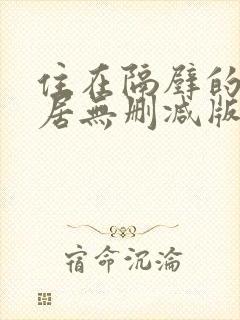 住在隔壁的
居無刪減版
宿命沉淪